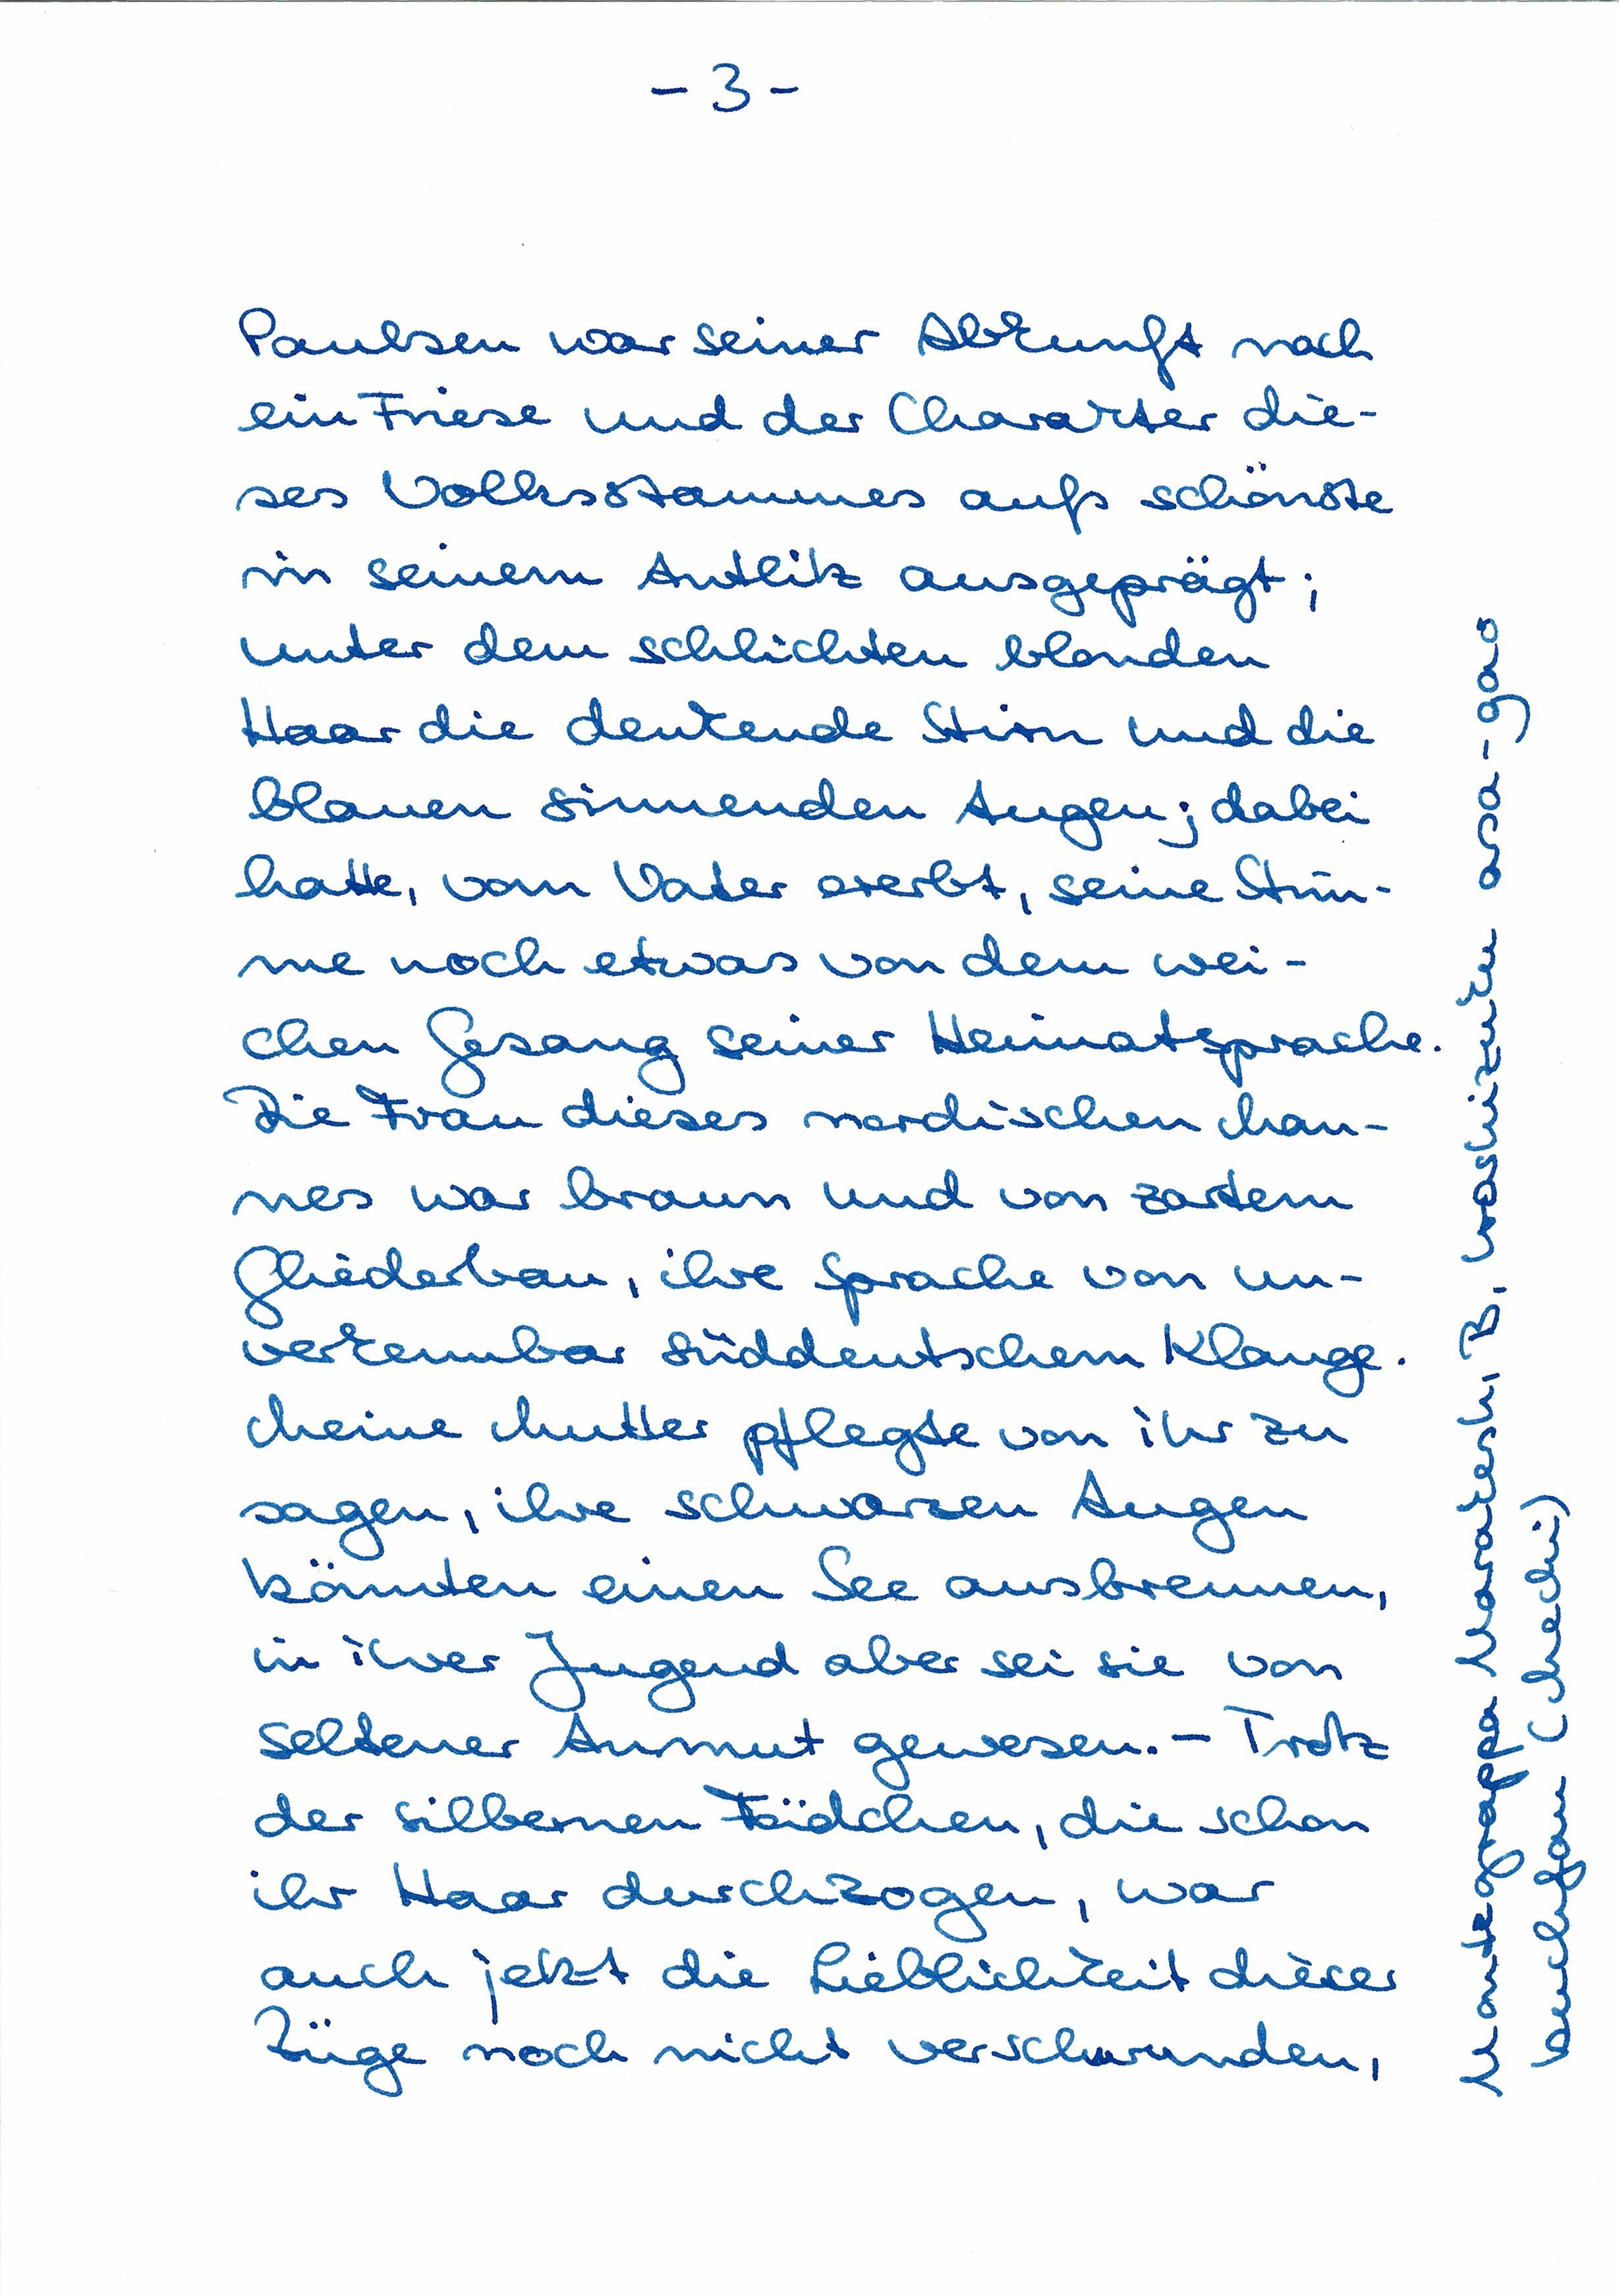 - 3 -
Paulsen war seiner Abkunft nach
ein Friese und der Charakter die-
ses Volksstammes aufs schönste
in seinem Antlitz ausgeprägt;
unter dem schlichten blonden
Haar die denkende Stirn und die
blauen sinnenden Augen; dabei
hatte, vom Vater ererbt, seine Stim-
me noch etwas von dem wei-
chen Gesang seiner Heimatsprache.
Die Frau dieses nordischen Man-
nes war braun und von zartem
Gliederbau, ihre Sprache von un-
verkennbar süddeutschem Klange.
Meine Mutter pflegte von ihr zu
sagen, ihre schwarzen Augen
könnten einen See ausbrennen,
in ihrer Jugend aber sei sie von
seltener Anmut gewesen. - Trotz
der silbernen Fädchen, die schon
ihr Haar durchzogen, war
auch jetzt die Lieblichkeit dieser
Züge noch nicht verschwunden,
Montegrappa Marakesh, B, Iroshizuku asa-gao
buchfan (Mechi)